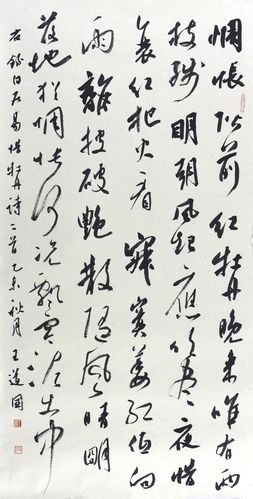 惆悵階前红牡丹晚来唯有两
枝残明朝风起應吹尽夜惜
衰红把火看寂寞萎红低向
雨離披破艶散随风晴明
落地猶惆悵何况飄零泥土中
右録白居易惜牡丹詩二首乙未秋月王道國